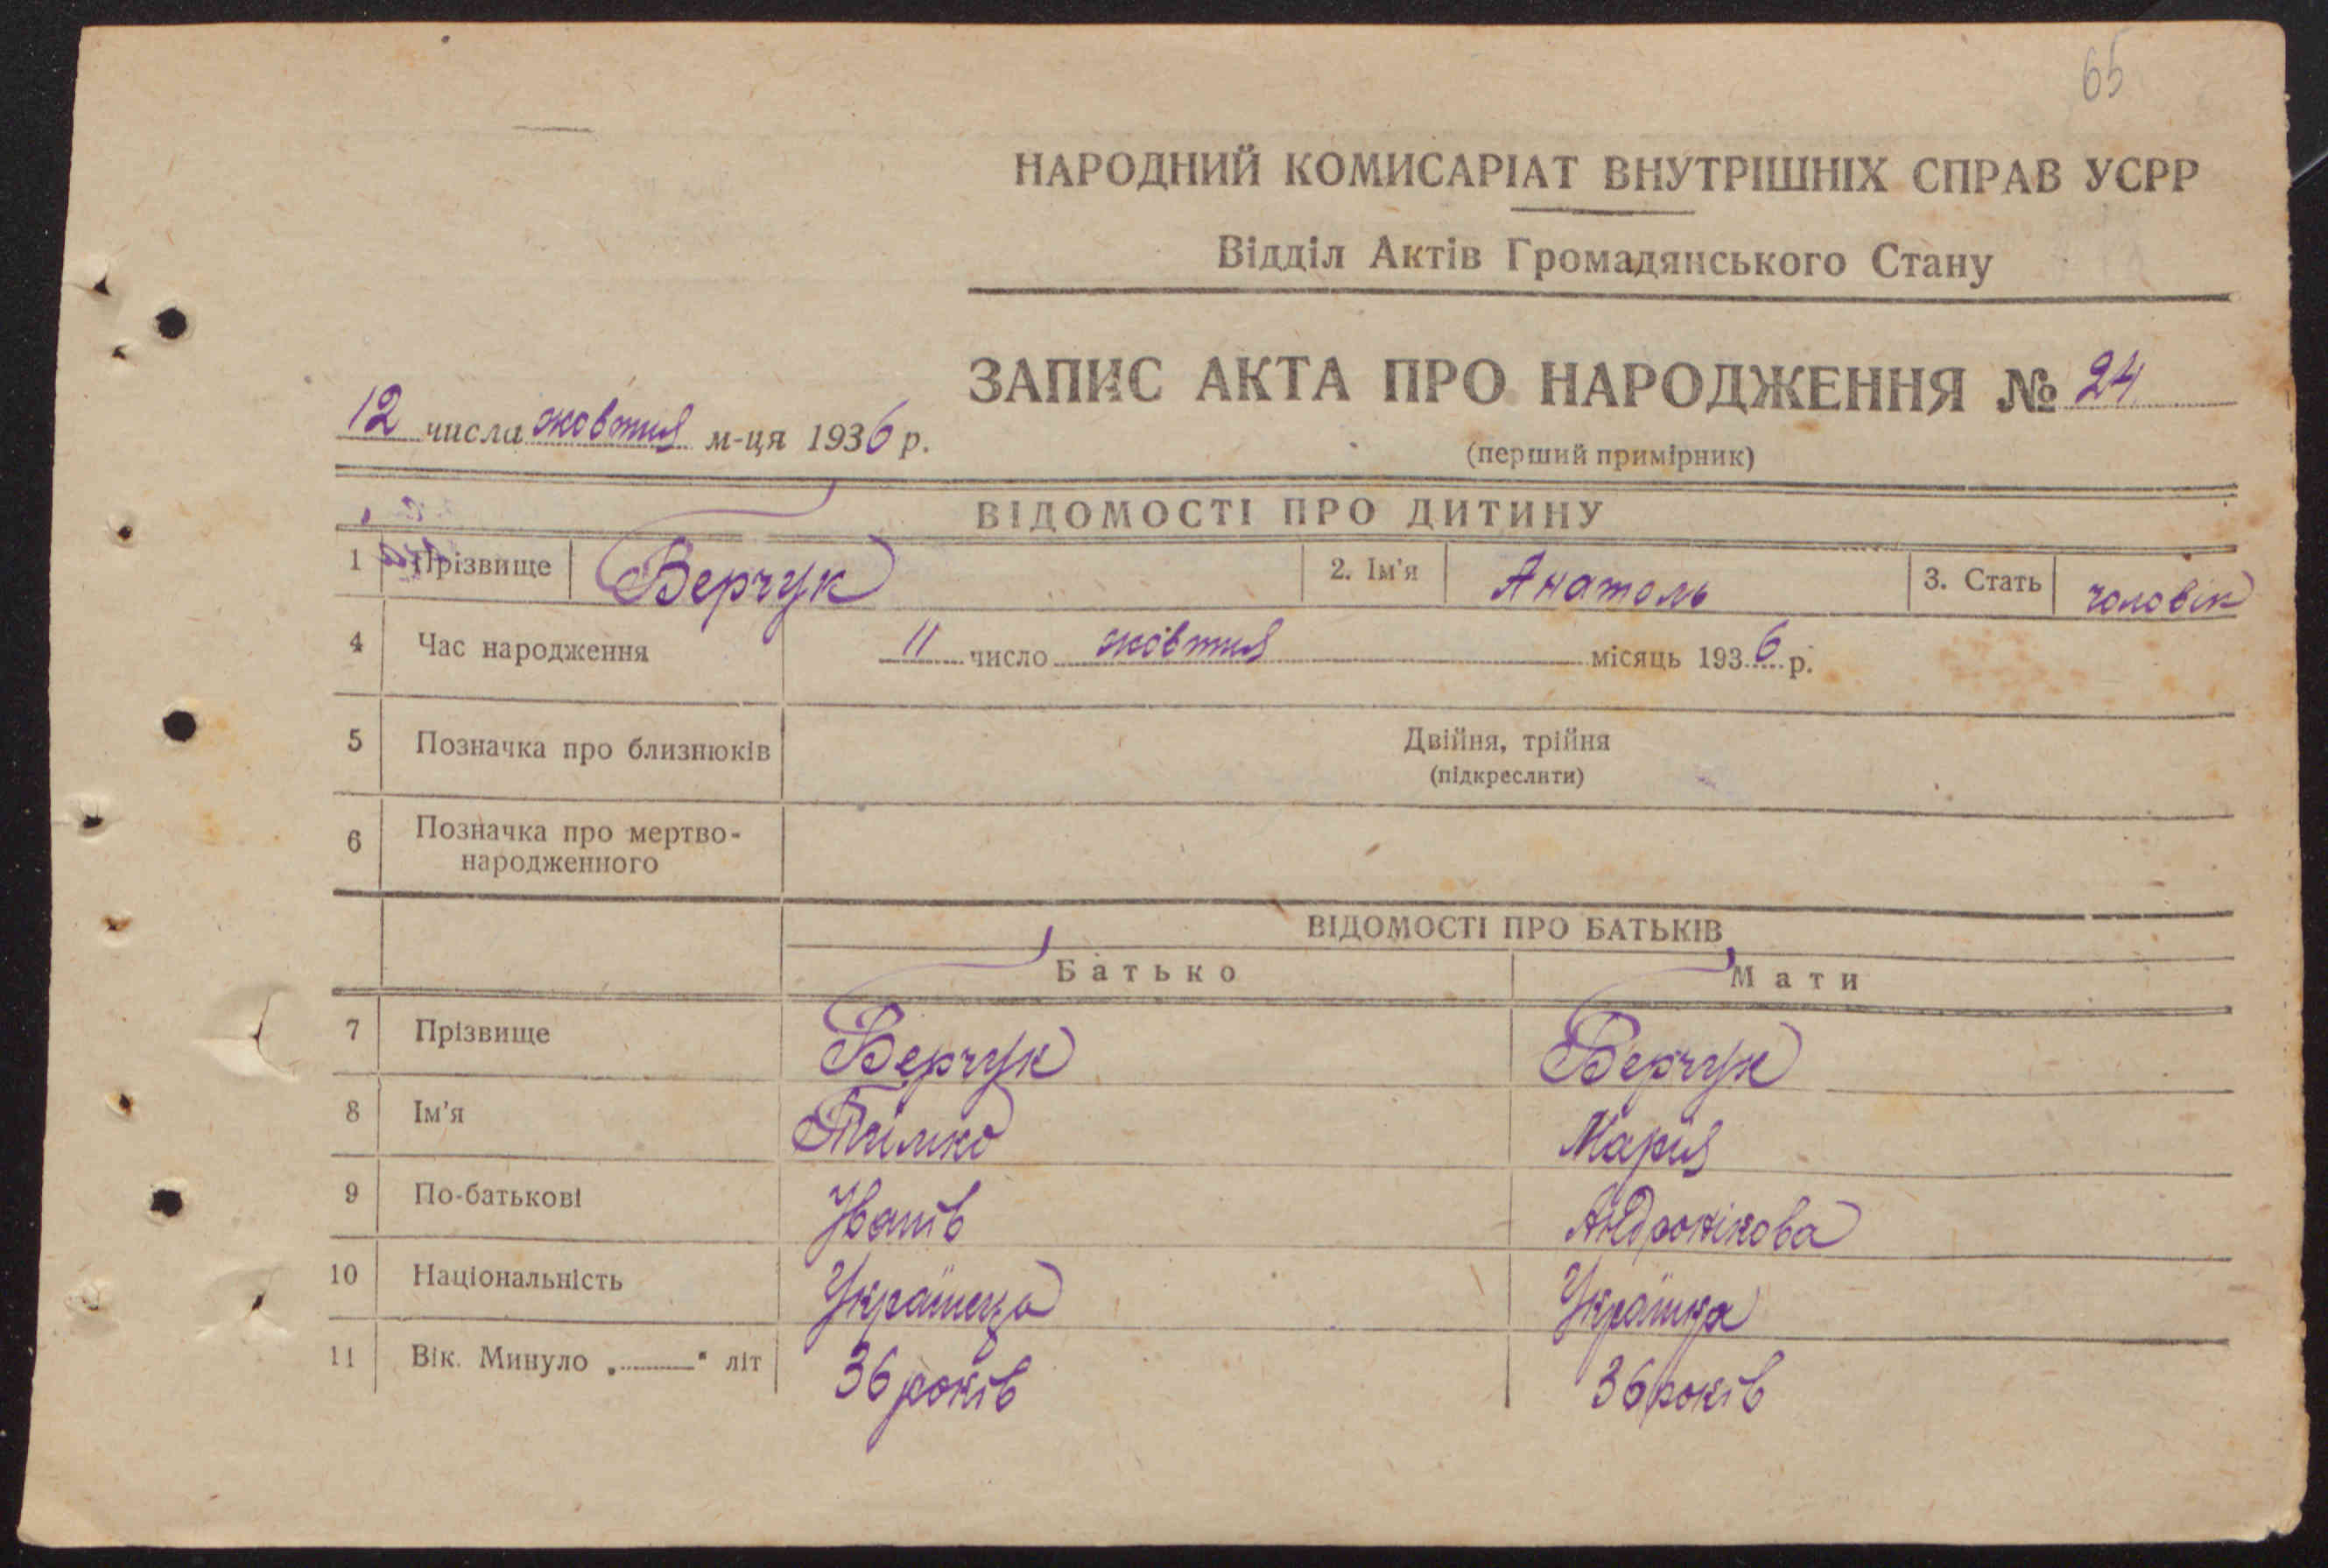 65
НАРОДНИЙ КОМИСАРІАТ ВНУТРІШНІХ СПРАВ УСРР
Відділ Актів Громадянського Стану
ЗАПИС АКТА ПРО НАРОДЖЕННЯ № 24
12 числа жовтня м-ця 1936 р.
(перший примірник)
ВІДОМОСТІ ПРО ДИТИНУ
1 Прізвище Верчук 2. Ім'я Анатоль 3. Стать чоловік
4 Час народження 11 число жовтня місяць 1936 р.
5 Позначка про близнюків Двійня, трійня
(підкреслити)
6 Позначка про мертво-
народженного
ВІДОМОСТІ ПРО БАТЬКІВ
Батько Мати
7 Прізвище Верчук Верчук
8 Ім'я Тимко Марія
9 По-батькові Іванів Андронікова
10 Національність Українець Українка
11 Вік. Минуло „ " літ 36 років 36 років